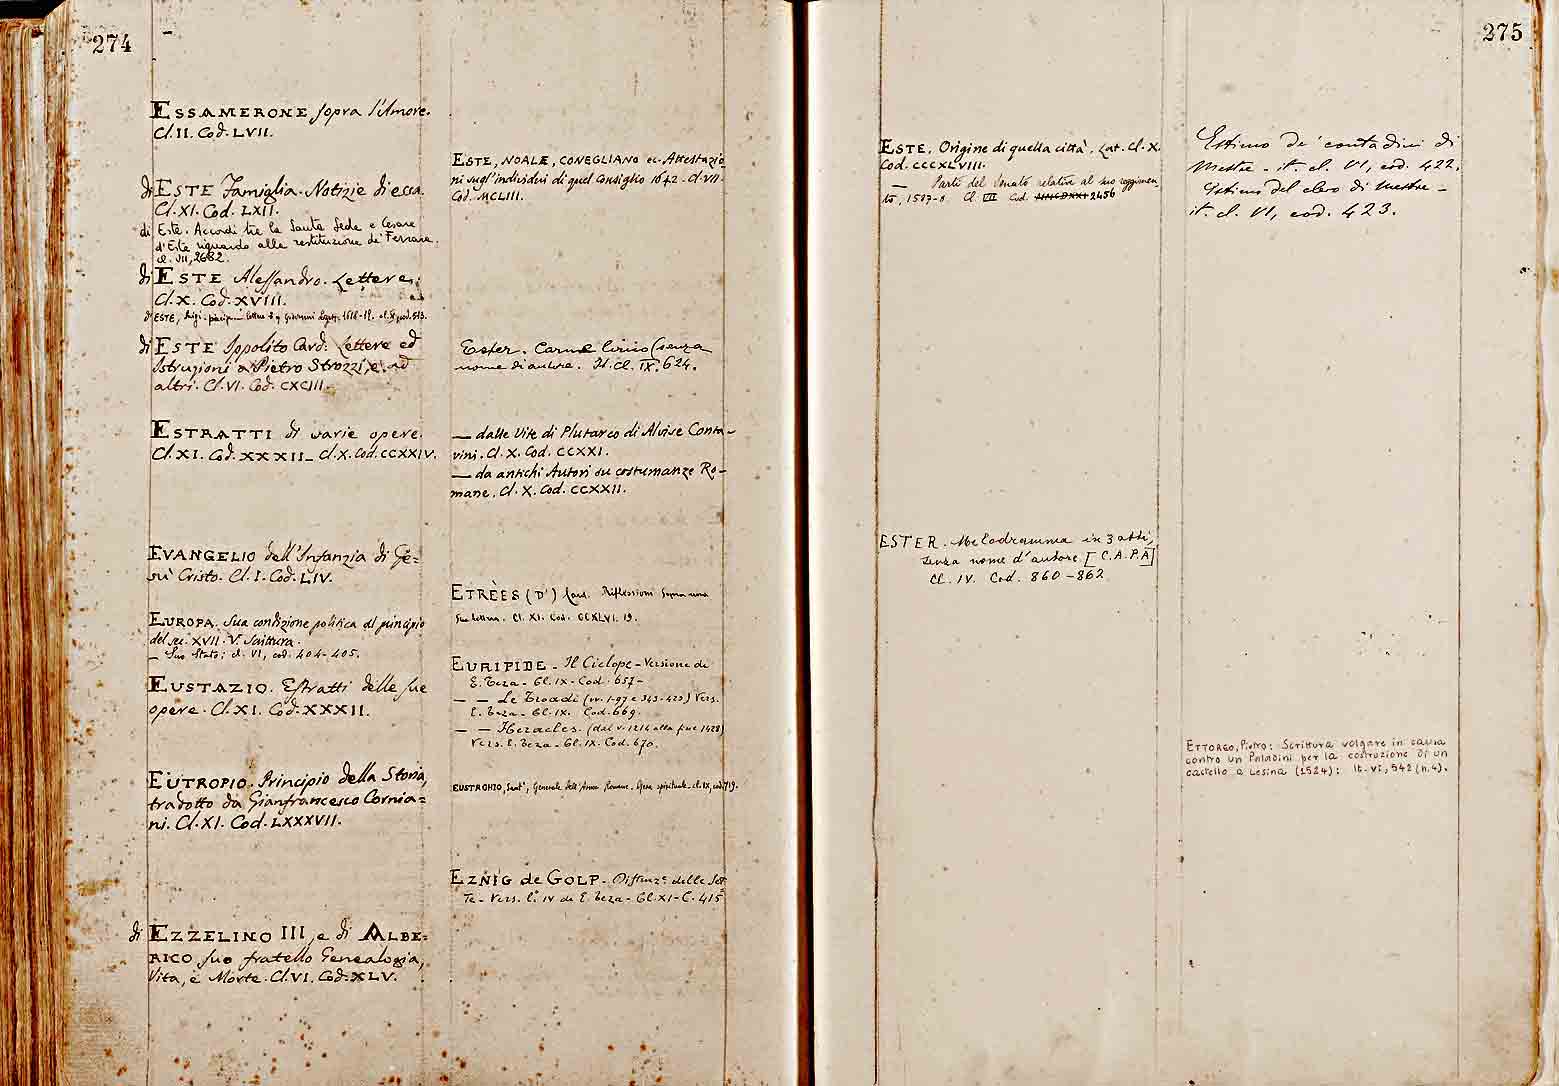 274
ESSAMERONE sopra l'Amore.
Cl. II. Cod. LVII.
di ESTE Famiglia. Notizie di essa.
Cl. XI. Cod. LXII.
di Este. Accordi tra la Santa Sede e Cesare
d'Este riguardo alla restituzione de' Ferrara.
cl. VII, 2682.
di ESTE Alessandro. Lettere.
Cl. X. Cod. XVIII.
ESTE, Luigi
di ESTE Ippolito Card. Lettere ed
Istruzioni a Pietro Strozzi, e ad
altri. Cl. VI. Cod. CXCIII.
ESTRATTI di varie opere.
Cl. XI. Cod. XXXII - Cl. X. Cod. CCXXIV.
EVANGELIO dell'Infanzia di Ge=
sù Cristo. Cl. I. Cod. LIV.
EUROPA. Sua condizione politica al principio
del sec. XVII. V. Scrittura.
— Suo Stato; cl. VI, cod. 404-405.
EUSTAZIO. Estratti delle sue
opere. Cl. XI. Cod. XXXII.
EUTROPIO. Principio della Storia,
tradotto da Gianfrancesco Cornia=
ni. Cl. XI. Cod. LXXXVII.
di EZZELINO III, e di ALBE=
RICO suo fratello Genealogia,
Vita, e Morte. Cl. VI. Cod. XLV.
ESTE, NOALE, CONEGLIANO ec. Attestazio
ni sugl'individui di quel Consiglio 1642. Cl. VII.
Cod. MCLIII.
Ester. Carme lirico (senza
nome di autore. It. Cl. IX. 624.
— dalle Vite di Plutarco di Alvise Conta-
vini. Cl. X. Cod. CCXXI.
— da antichi Autori su costumanze Ro-
mane. Cl. X. Cod. CCXXII.
ETRÈES (D') Card. Riflessioni sopra una
sua lettera. Cl. XI. Cod. CCXLVI. 19.
EURIPIDE - Il Ciclope - Versione de
E. Teza - Cl. IX - Cod. 657 -
— — Le Troadi (vv. 1-97 e 343-423) Vers.
E. Teza - Cl. IX. Cod. 669.
— — Heracles. (dal v. 1214 alla fine 1428)
Vers. E. Teza - Cl. IX. Cod. 670.
EUSTACHIO, Sant', Generale dell'Armi Romane. Opera spirituale. cl. IX, cod. 719.
EZNIG de GOLP - delle Set
te - Vers. l. IV de E. Teza - Cl. XI - C. 415
275
ESTE. Origine di quella città. Lat. Cl. X.
Cod. CCCXLVIII.
— Parti del Senato relative al suo reggimen
to, 1507-8. Cl. VII Cod. 2456
ESTER. Melodramma in 3 atti,
senza nome d'autore [C.A.P.A]
Cl. IV. Cod. 860-862
Estimo de' contadini di
Mestre - it. cl. VI, cod. 422.
Estimo del clero di Mestre -
it. cl. VI, cod. 423.
ETTOREO, Pietro: Scrittura volgare in causa
contro un Paladini per la costruzione di un
castello a Lesina (1524): It. VI, 542 (n. 4).